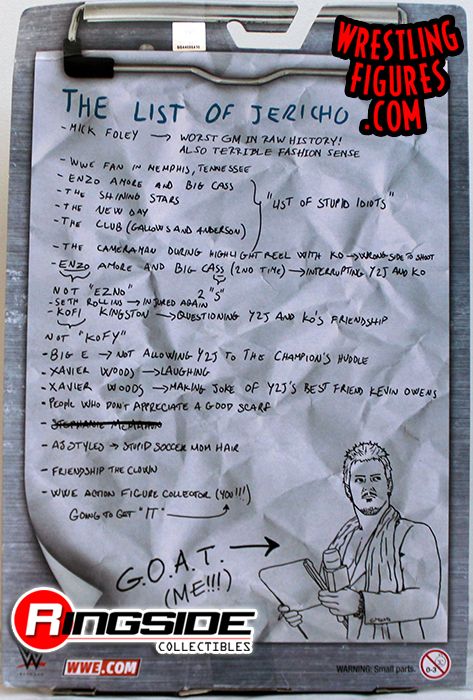 WRESTLING
FIGURES
.COM
THE LIST OF JERICHO
- MICK FOLEY → WORST GM IN RAW HISTORY!
ALSO TERRIBLE FASHION SENSE
- WWE FAN IN MEMPHIS, TENNESSEE
- ENZO AMORE AND BIG CASS
- THE SHINING STARS
- THE NEW DAY
- THE CLUB (GALLOWS AND ANDERSON)
"LIST OF STUPID IDIOTS"
- THE CAMERAMAN DURING HIGHLIGHT REEL WITH KO → WRONG SIDE TO SHOOT
- ENZO AMORE AND BIG CASS (2ND TIME) → INTERRUPTING Y2J AND KO
NOT "EZNO" 2 "S"
- SETH ROLLINS → INJURED AGAIN
- KOFI KINGSTON → QUESTIONING Y2J AND KO'S FRIENDSHIP
NOT "KOFY"
- BIG E → NOT ALLOWING Y2J TO THE CHAMPION'S HUDDLE
- XAVIER WOODS → LAUGHING
- XAVIER WOODS → MAKING JOKE OF Y2J'S BEST FRIEND KEVIN OWENS
- PEOPLE WHO DON'T APPRECIATE A GOOD SCARF
- STEPHANIE McMAHON
- AJ STYLES → STUPID SOCCER MOM HAIR
- FRIENDSHIP THE CLOWN
- WWE ACTION FIGURE COLLECTOR (YOU!!!)
GOING TO GET "IT"
G.O.A.T. →
(ME!!!)
RINGSIDE
COLLECTIBLES
W
WWE.COM
WARNING: Small parts.
0-3